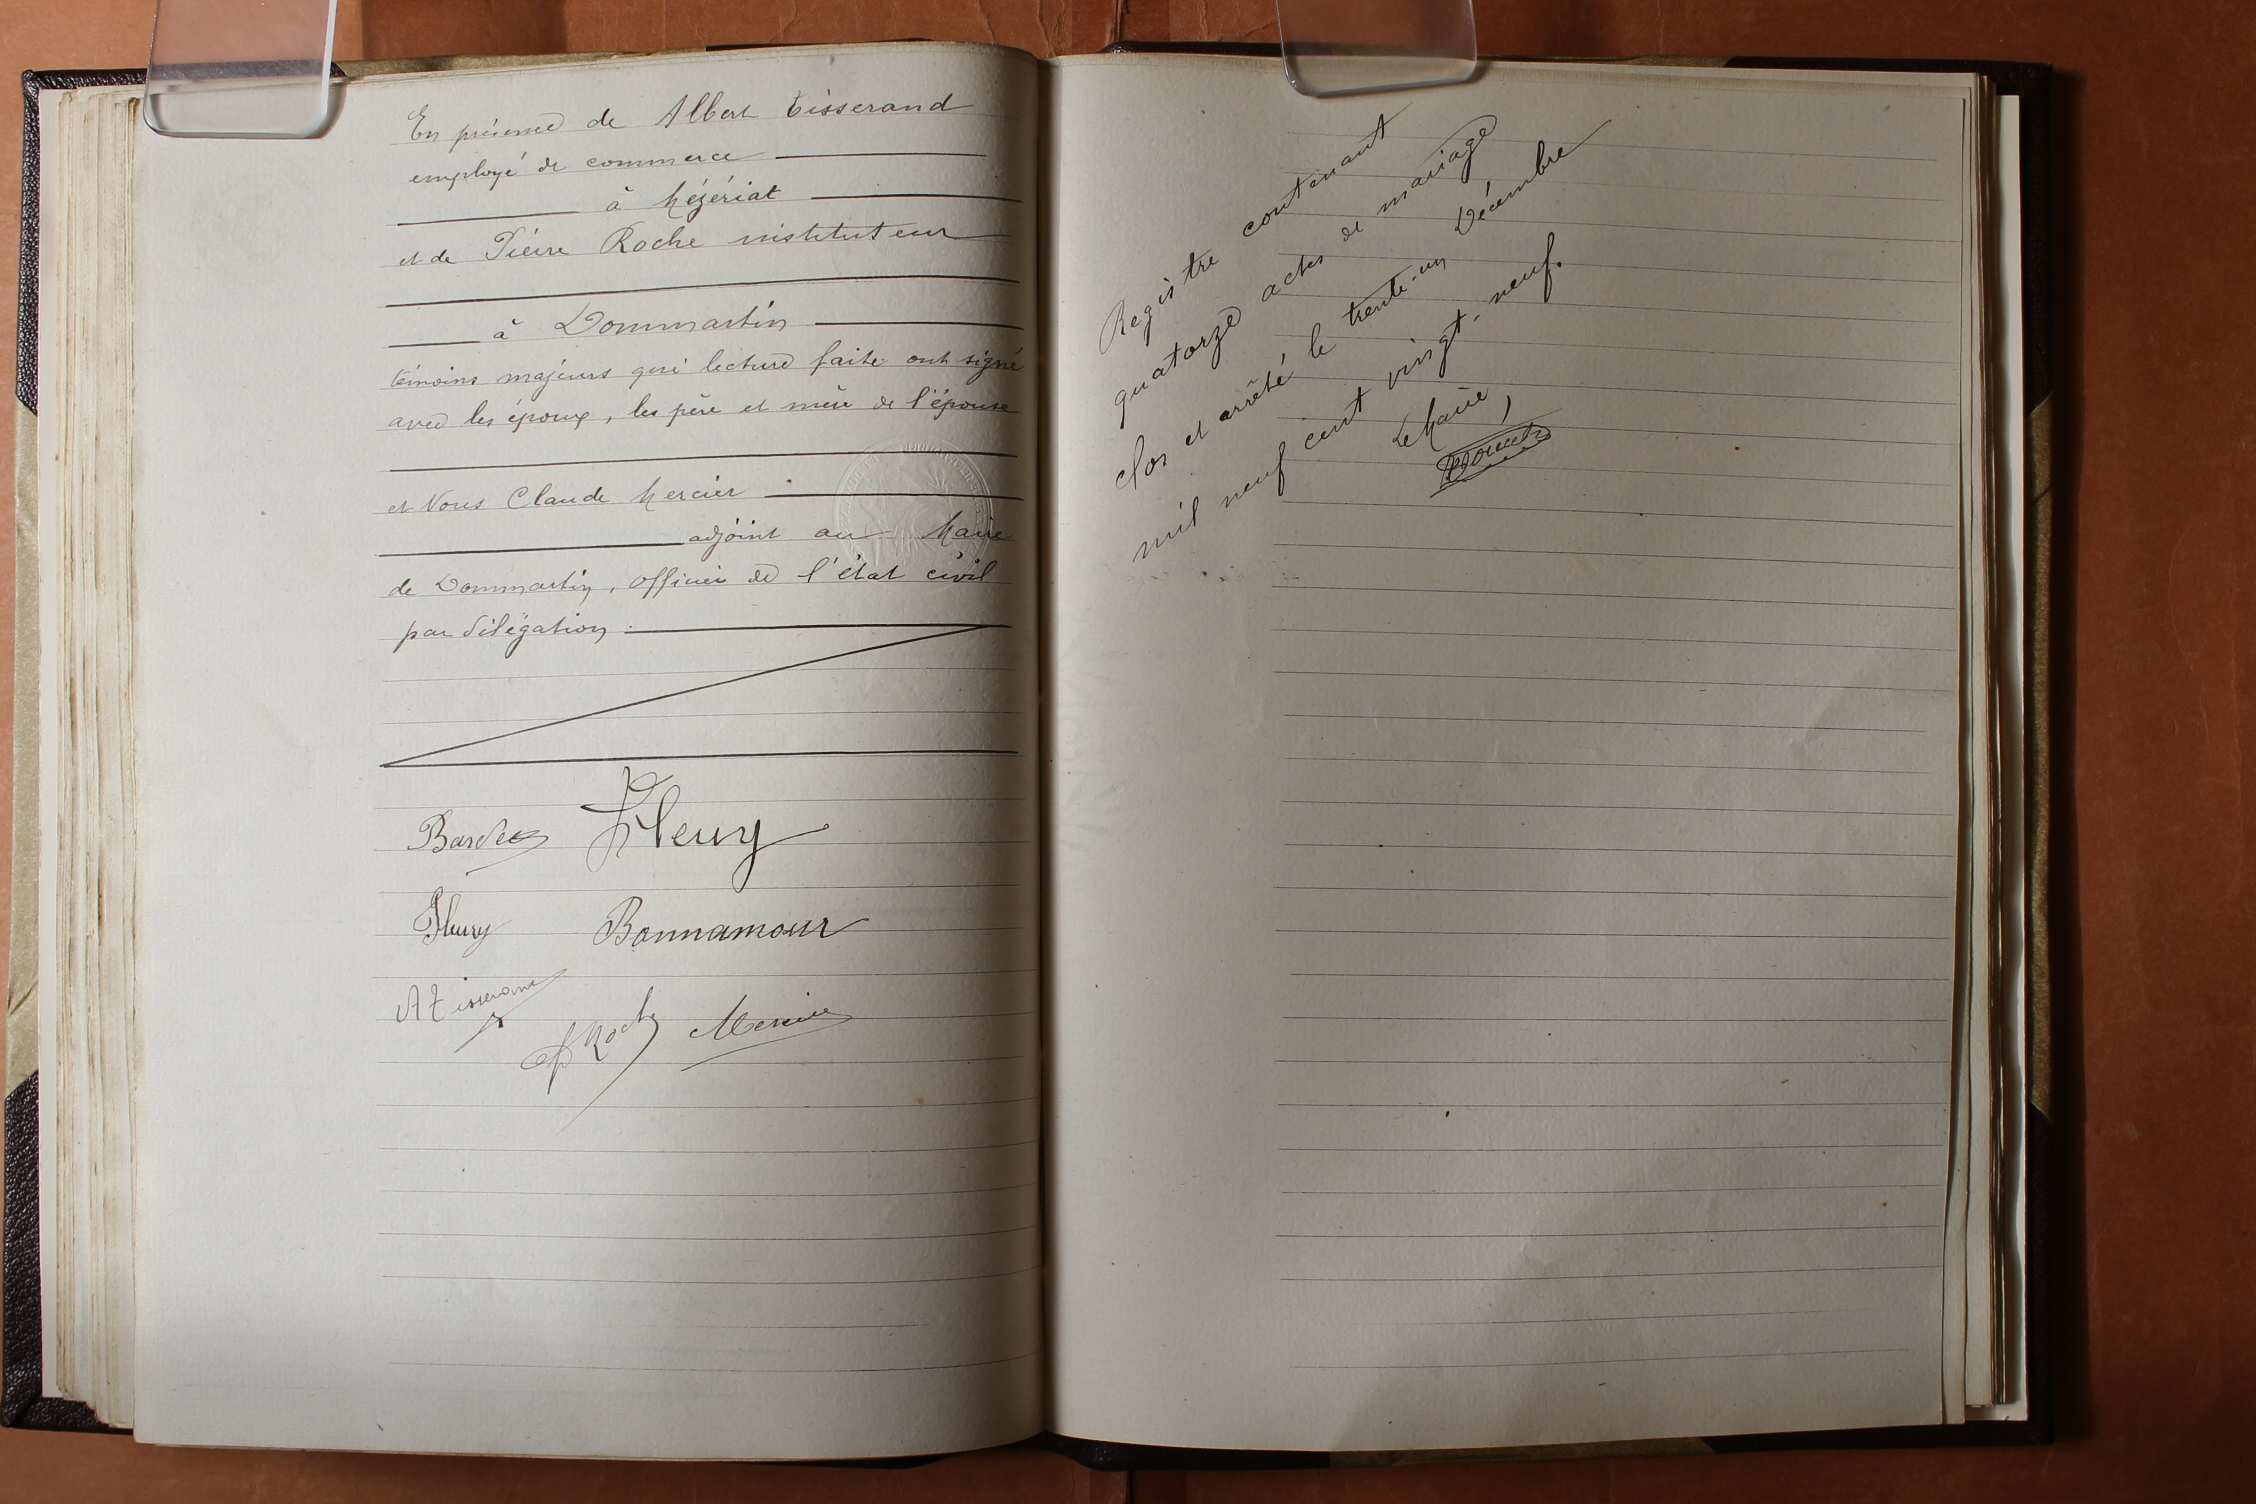 En présence de Albert Tisserand
employé de commerce
à Mézériat
et de Pierre Roche instituteur
à Dommartin
témoins majeurs qui lecture faite ont signé
avec les époux, les père et mère de l'épouse
et Nous Claude Mercier
adjoint au Maire
de Dommartin, officier de l'état civil
par délégation.
Fleury
Fleury Bonnamour
A Tisserand
P Roche Mercier
Registre contenant
quatorze actes de mariage
clos et arrêté le trente-un Décembre
mil neuf cent vingt-neuf.
Le Maire,